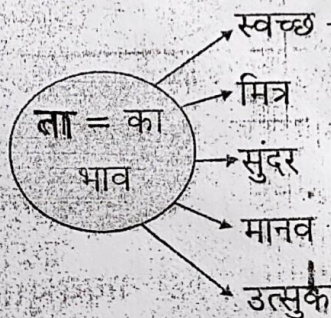 ता = का
भाव
स्वच्छ
मित्र
सुंदर
मानव
उत्सुक